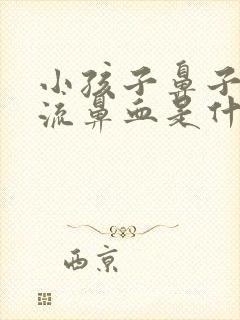 小孩子鼻子
流鼻血是什
西京